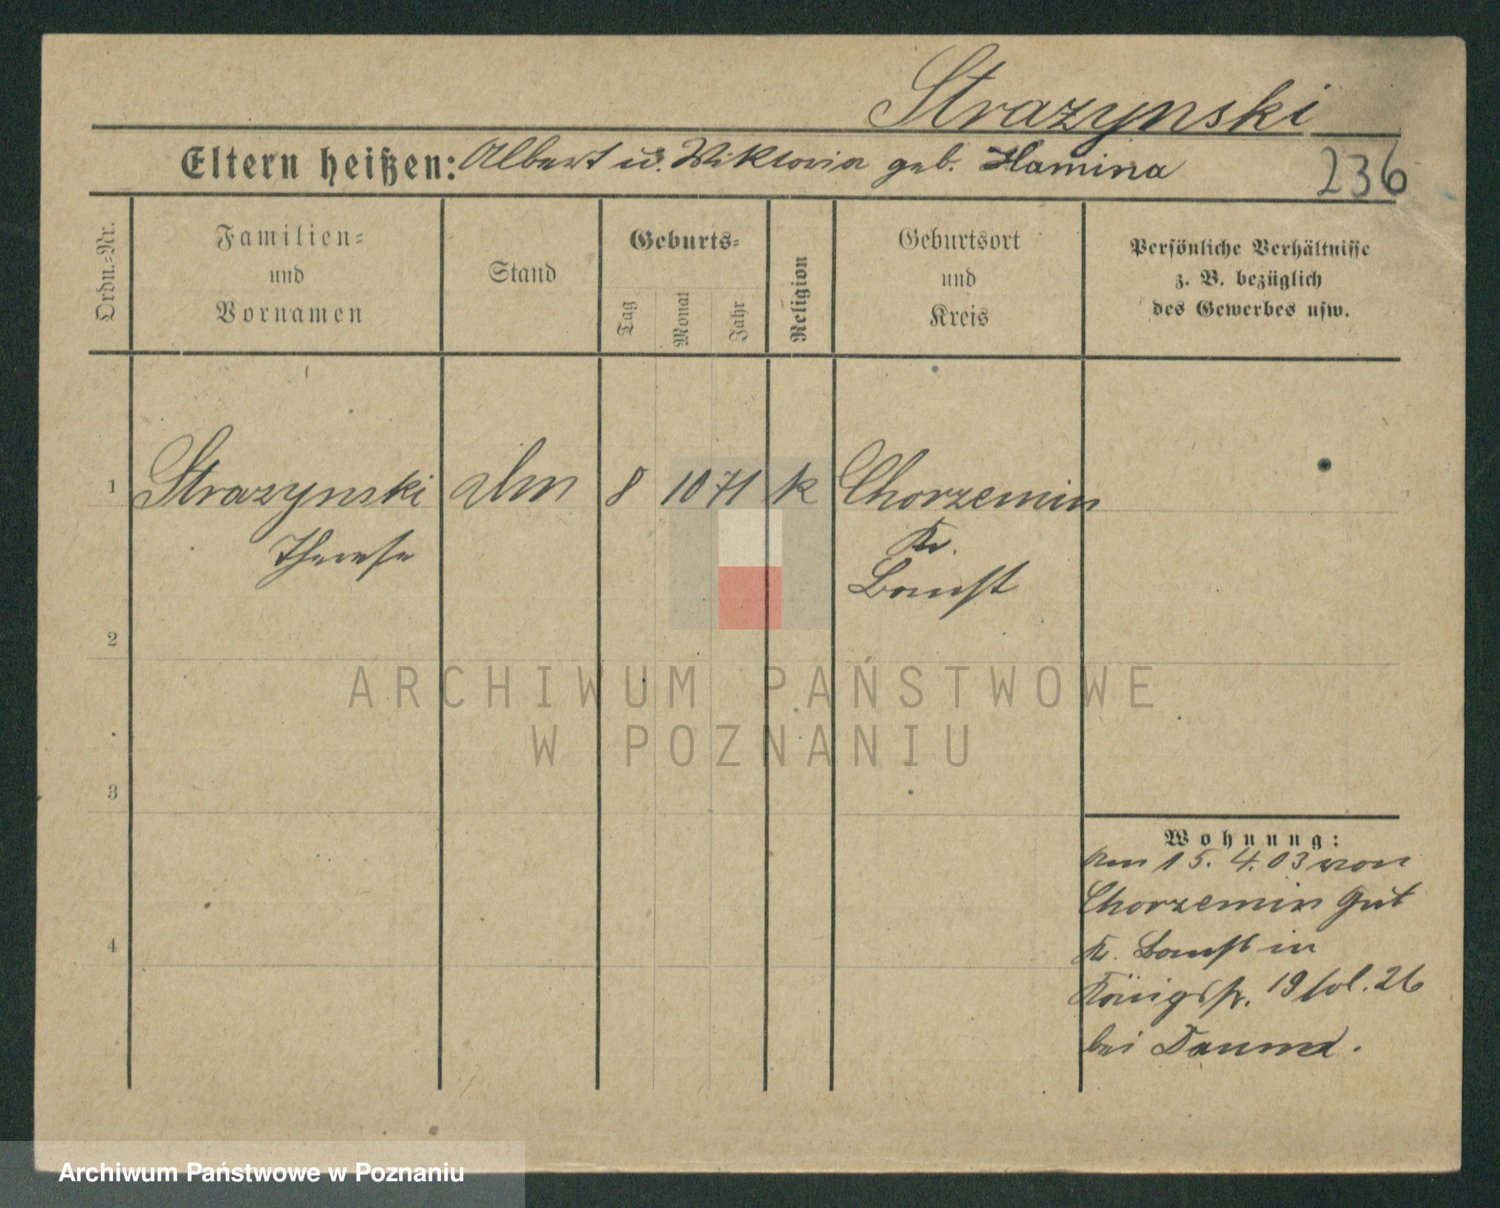 Strazynski
Eltern heißen: Albert u. Wiktoria geb. Hamina
236
Ordn.-Nr.
Familien-
und
Vornamen
Stand
Geburts-
Tag
Monat
Jahr
Religion
Geburtsort
und
Kreis
Persönliche Verhältnisse
z. B. bezüglich
des Gewerbes usw.
1 Strazynski 8 10 71 k Chorzemin
Therese
Kr.
Bomst
2
ARCHIWUM PAŃSTWOWE
W POZNANIU
3
4
Wohnung:
15. 4. 03 von
Chorzemin Gut
Kr. Bomst in
Königstr. 19
bei
Archiwum Państwowe w Poznaniu